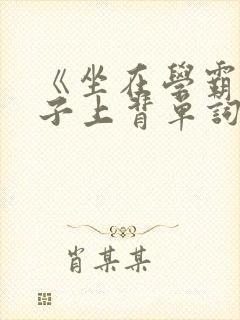 《坐在學霸
子上背單詞
肖某某